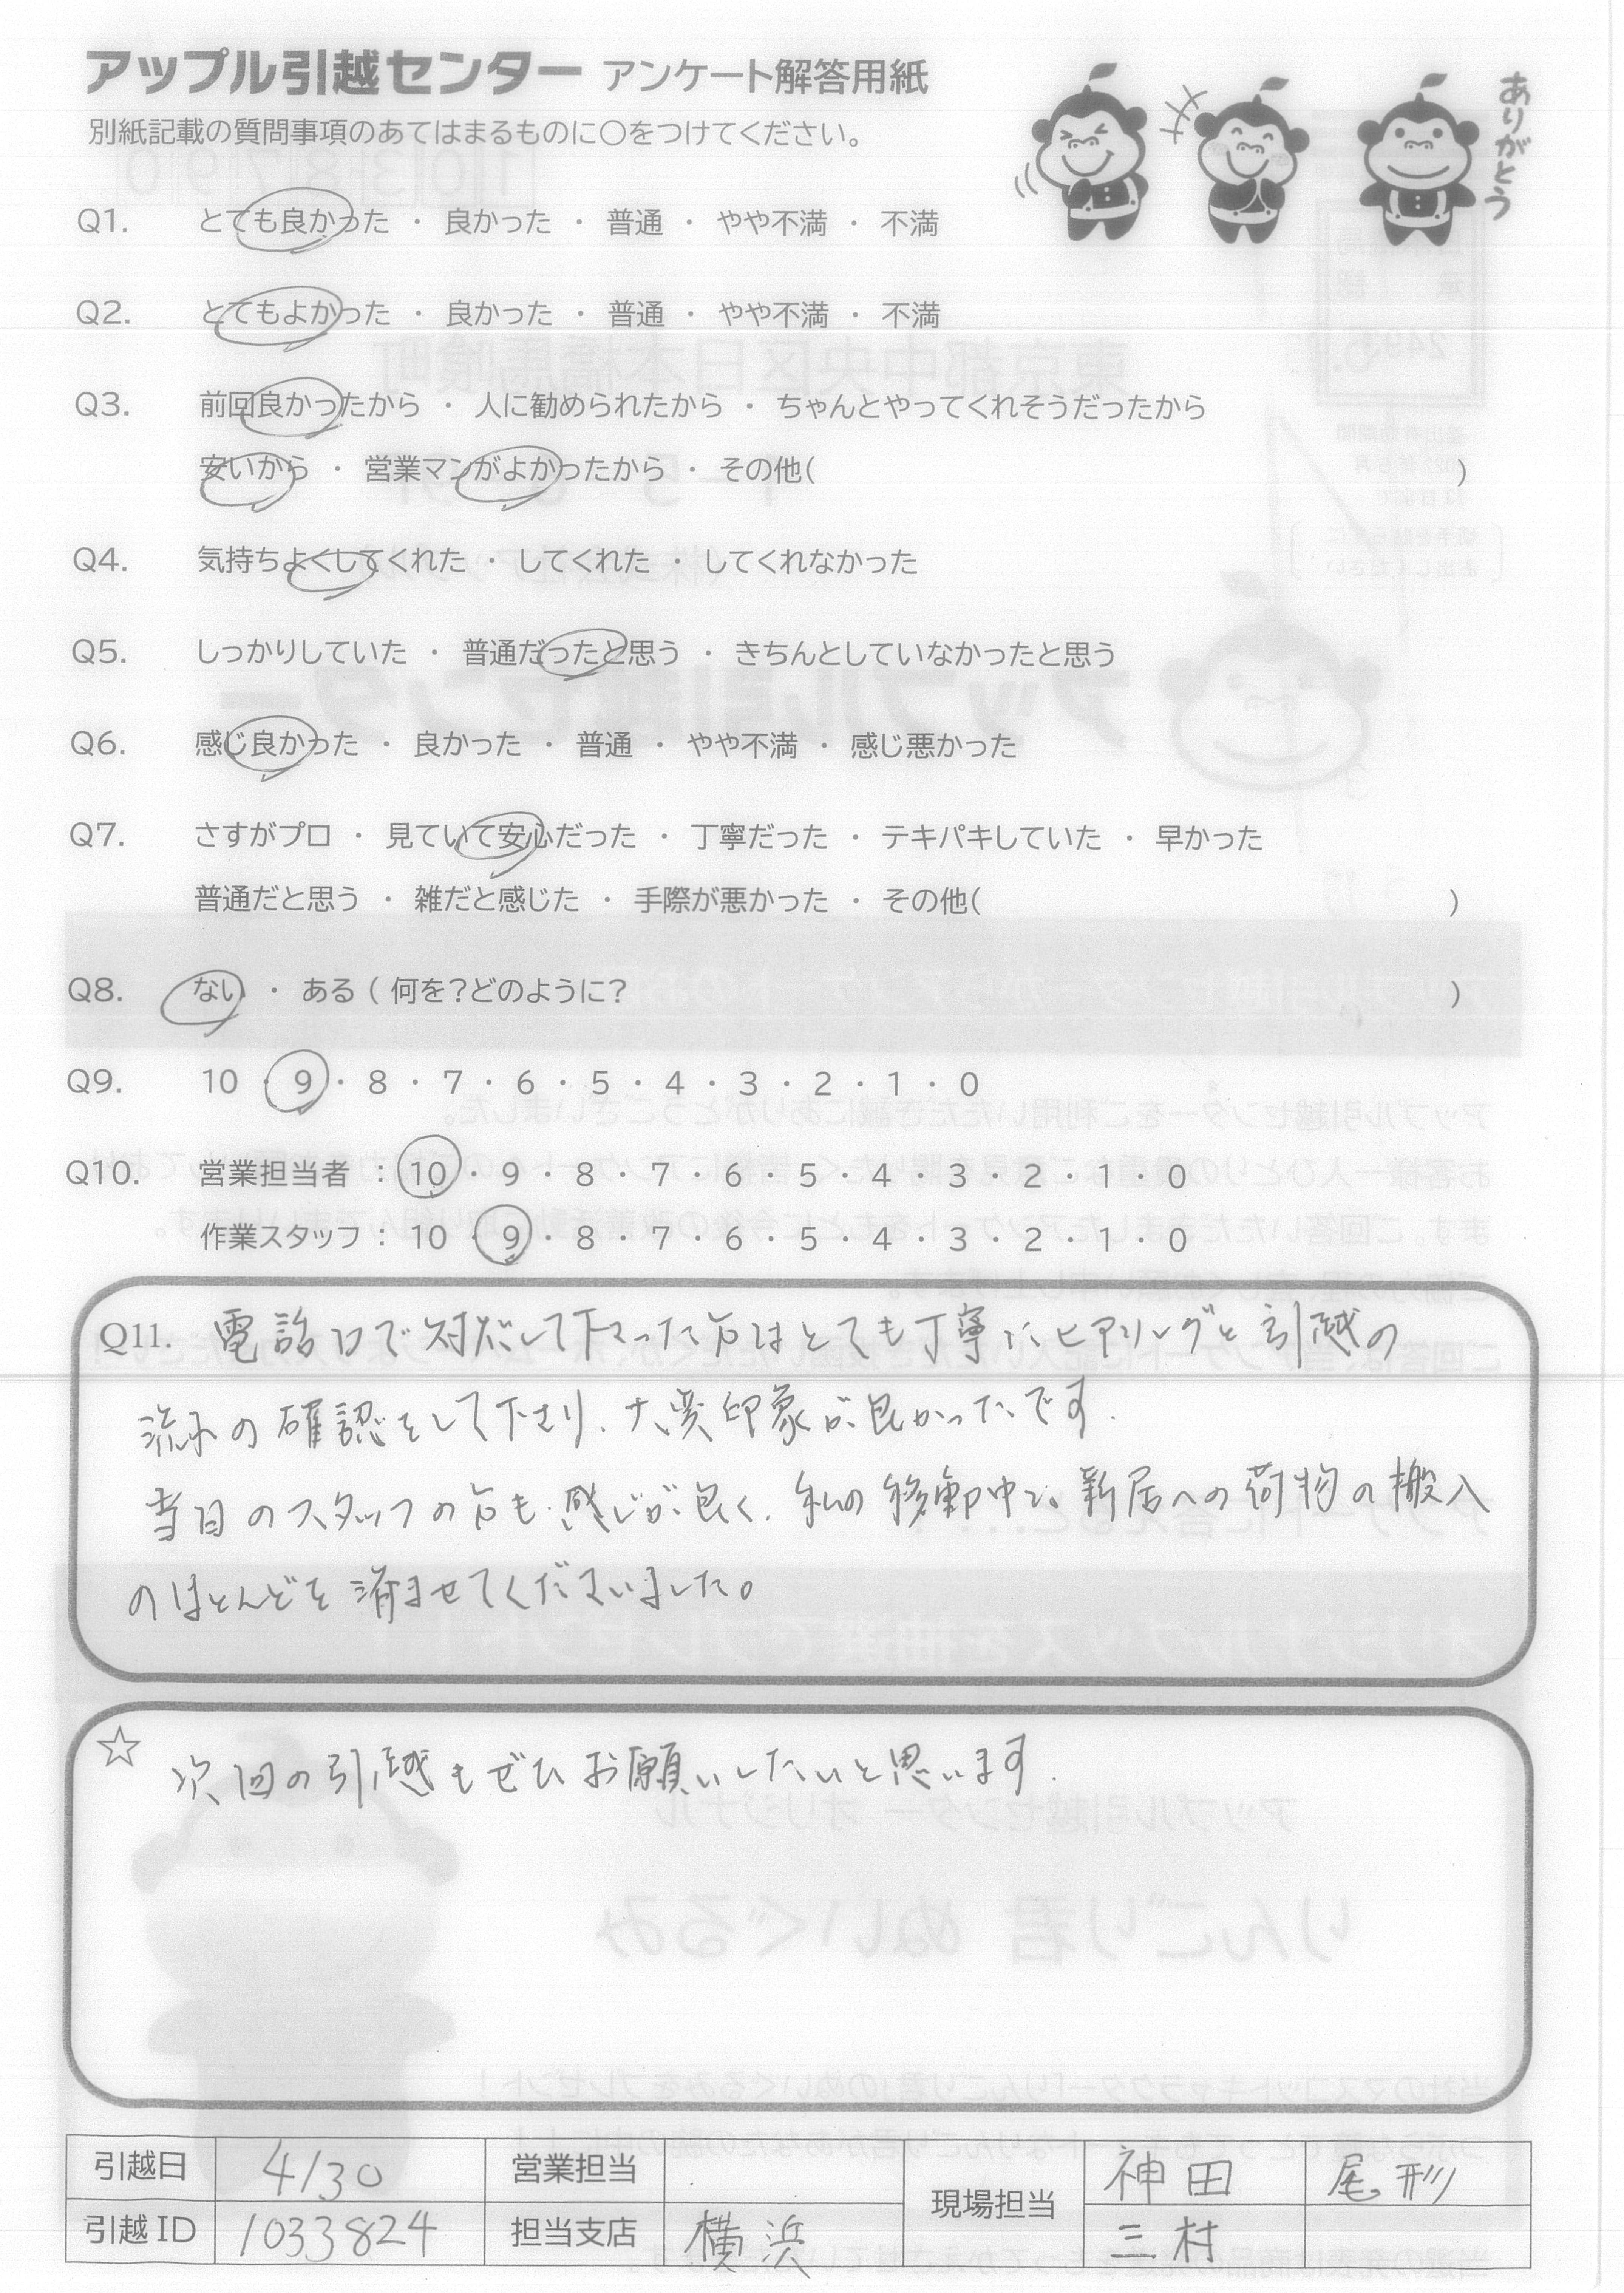 アップル引越センター アンケート解答用紙
別紙記載の質問事項のあてはまるものに○をつけてください。
ありがとう
Q1. とても良かった ・ 良かった ・ 普通 ・ やや不満 ・ 不満
Q2. とてもよかった ・ 良かった ・ 普通 ・ やや不満 ・ 不満
Q3. 前回良かったから ・ 人に勧められたから ・ ちゃんとやってくれそうだったから
安いから ・ 営業マンがよかったから ・ その他( )
Q4. 気持ちよくしてくれた ・ してくれた ・ してくれなかった
Q5. しっかりしていた ・ 普通だったと思う ・ きちんとしていなかったと思う
Q6. 感じ良かった ・ 良かった ・ 普通 ・ やや不満 ・ 感じ悪かった
Q7. さすがプロ ・ 見ていて安心だった ・ 丁寧だった ・ テキパキしていた ・ 早かった
普通だと思う ・ 雑だと感じた ・ 手際が悪かった ・ その他( )
Q8. ない ・ ある ( 何を?どのように? )
Q9. 10 ・ 9 ・ 8 ・ 7 ・ 6 ・ 5 ・ 4 ・ 3 ・ 2 ・ 1 ・ 0
Q10. 営業担当者 : 10 ・ 9 ・ 8 ・ 7 ・ 6 ・ 5 ・ 4 ・ 3 ・ 2 ・ 1 ・ 0
作業スタッフ : 10 ・ 9 ・ 8 ・ 7 ・ 6 ・ 5 ・ 4 ・ 3 ・ 2 ・ 1 ・ 0
Q11. 電話口で対応して下さった方はとても丁寧にヒアリングと引越の
流れの確認をして下さり、大変印象が良かったです.
当日のスタッフの方も感じが良く、私の移動中に新居への荷物の搬入
のほとんどを済ませてくださいました。
☆ 次回の引越もぜひお願いしたいと思います.
引越日 4/30 営業担当 現場担当 神田 尾形
引越ID 1033824 担当支店 横浜 三村